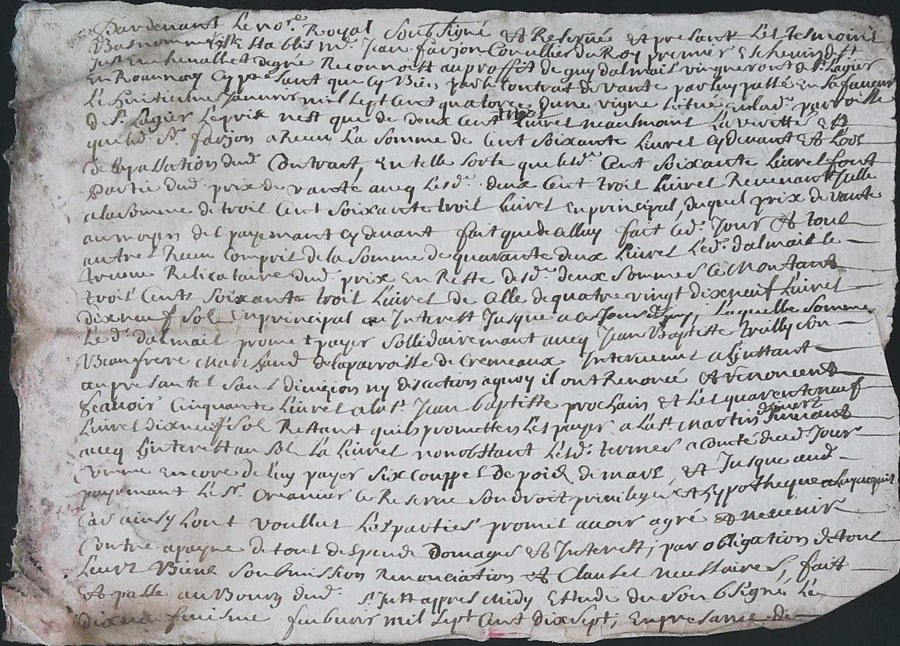 Pardevant Le no.re Royal Soubsigné et Reservé et presant Les tesmoins
Basnommés Estably M.e Jean farjon Conseillier du Roy premier Eschevin de St
Just en chevallet de gré Reconnoit au proffit de guy dalmais vigneron de St. Lagier
En Roannay cy presant que cy Bien par le Contrait de vante par luy passé en sa faveur
Le huitiesme Janvier mil sept cent quatorze d'une vigne située en lad. parroisse
de St. Lagier Le prix n'est que de deux Cent trois Livres neaulmoint La verittè est
que led. Sr. farjon a Receu La somme de Cent soixante Livres cydevant et Lors
de la passation dud. Contract, En telle sorte que lesd. Cent soixante Livres font
partie dud. prix de vante avecq lesd. deux Cent trois Livres Revenant Jcelle
a la somme de trois Cent soixante trois Livres en principal, duquel prix de vante
au moyen des payemant cydevant fait que de Celluy fait ced. Jour et tout
autres Receu Compris de la somme de quarante deux Livres Led. dalmais se
treuve Relicataire dud. prix En Reste desd. deux sommes se montant
trois Cents soixante trois Livres de Celle de quatre vingt dix neuf Livres
dix neuf sols En principal et Interest Jusque a ce Jourd'huy, Laquelle somme
Led. dalmais promet payer sollidairemant avecq Jean Baptiste
Beaufrere Marchand de la parroisse de Cremeaux Intervenent
au presantes sans division ny discution a quoy il ont Renoncé et Renoncent
sçavoir Cinquante Livres a la St. Jean baptiste prochain et Les quarante neuf
Livres dix neuf sol Restant quils promettent Les payer a La St. Martin d'hivert suivant
avecq L'interest au sol La Livre nonobstant Lesd. termes a conte de ced. Jour
Comme Encore de luy payer six Couppes de pois de mars, et Jusque aud.
payemant Le Sr. Creancier se Reserve son droit privilegié et hypotheque
Car ainsy L'ont voullus Les parties promis avoir agré et ne venir
Contre a payne de tout despends Domages et Interest, par obligation de tous
Leurs Biens soubmission Renonciation et Clauses necessaires, fait
et passé au Bourg dud. St. Just appres midy Estude du soubsigné Le
dix neufviesme febvrier mil sept Cent dix sept, en presance de